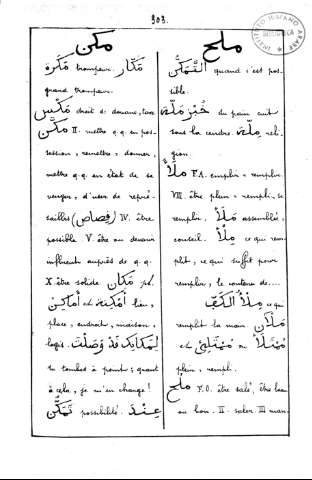 303.
مكن
ملح
مَكَّار trompeur. مَكَرَة
grand trompeur.
مَكْس droit de douane, taxe
مَكَّنَ II. mettre q.q. en pos-
session, remettre, donner,
mettre q.q. en état de se
venger, d'user de repré-
sailles (قِصَاص) IV. être
possible V. être ou devenir
influent auprès de q.q.
X. être solide مَكَان pl.
أَمْكِنَة et أَمَاكِن lieu,
place, endroit, maison,
logis. لِمَكَانِكَ قَدْ وَصَلْتَ
tu tombes à point; quant
à cela, je m'en charge!
تَمَكُّن possibilité. عِنْدَ
التَّمَكُّن quand c'est pos-
sible.
خُبْز مَلَّة du pain cuit
sous la cendre. مِلَّة reli-
gion.
مَلَأَ F.A. emplir, remplir.
VIII. être plein, remplir, se
remplir. مَلَأ assemblée,
conseil. مِلْأ ce qui rem-
plit, ce qui suffit pour
remplir, le contenu de....
مِلْأ الكَفّ ce qui
remplit la main مَلْآن
et مُمْتَلِئ ou مُمْتَلَأ
plein, rempli.
مَلُحَ F.O. être salé, être beau
ou bon. II. saler. III man-